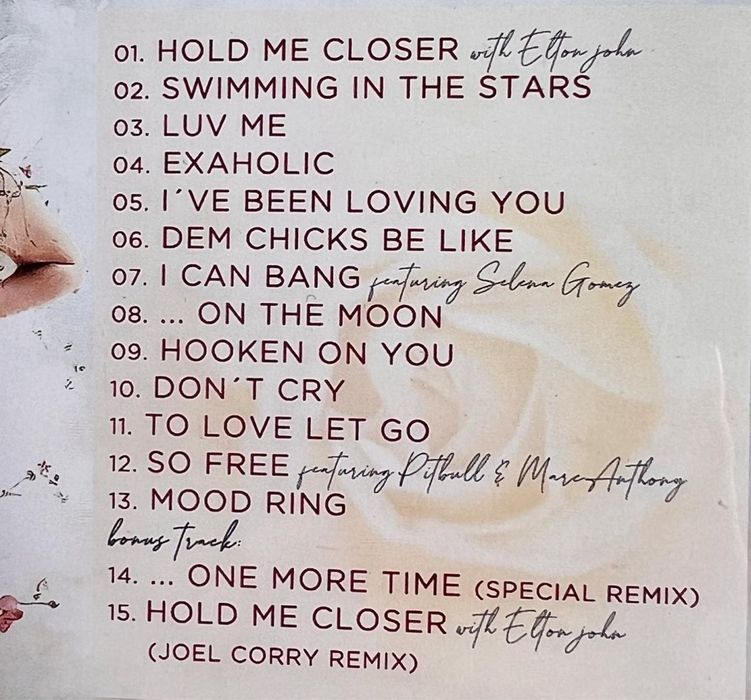 01. HOLD ME CLOSER with Elton john
02. SWIMMING IN THE STARS
03. LUV ME
04. EXAHOLIC
05. I´VE BEEN LOVING YOU
06. DEM CHICKS BE LIKE
07. I CAN BANG featuring Selena Gomez
08. ... ON THE MOON
09. HOOKEN ON YOU
10. DON´T CRY
11. TO LOVE LET GO
12. SO FREE featuring Pitbull & Marc Anthony
13. MOOD RING
bonus track:
14. ... ONE MORE TIME (SPECIAL REMIX)
15. HOLD ME CLOSER with Elton john
(JOEL CORRY REMIX)